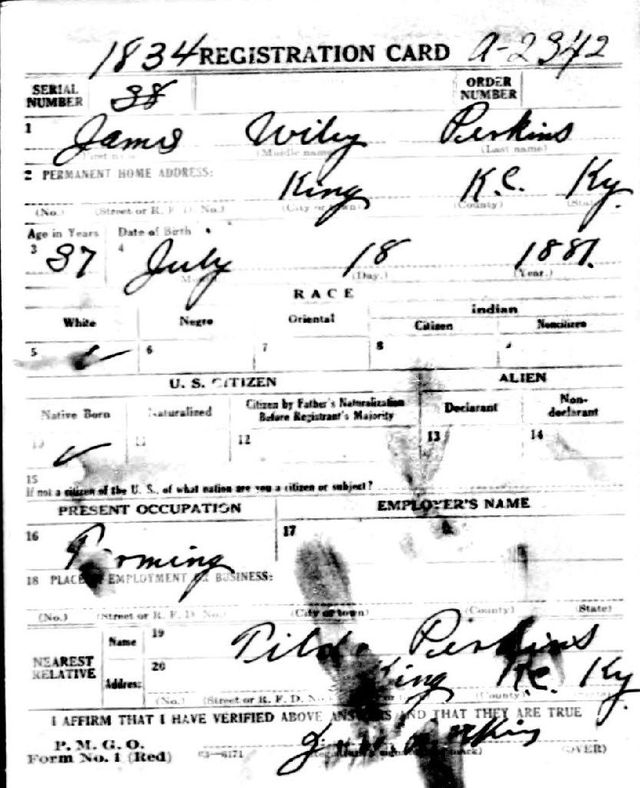 1834 REGISTRATION CARD A-2342
SERIAL NUMBER 38 ORDER NUMBER
1 James Wiley Perkins
(Middle name) (Last name)
2 PERMANENT HOME ADDRESS:
King K.C. Ky.
(No.) (Street or R. F. D. No.) (City or town) (County) (State)
Age in Years Date of Birth
3 37 4 July 18 1881.
(Day.) (Year.)
RACE
White Negro Oriental Indian
Citizen Noncitizen
5 ✓ 6 7 8
U. S. CITIZEN ALIEN
Native Born Naturalized Citizen by Father's Naturalization Before Registrant's Majority Declarant Non-declarant
10 ✓ 11 12 13 14
15
If not a citizen of the U. S., of what nation are you a citizen or subject?
PRESENT OCCUPATION EMPLOYER'S NAME
16 Forming 17
18 PLACE OF EMPLOYMENT OR BUSINESS:
(No.) (Street or R. F. D. No.) (City or town) (County) (State)
NEAREST RELATIVE Name 19 Perkins
Address 20 King K.C. Ky
(No.) (Street or R. F. D. No.) (County)
I AFFIRM THAT I HAVE VERIFIED ABOVE ANSWERS AND THAT THEY ARE TRUE
P. M. G. O.
Form No. 1 (Red) (OVER)